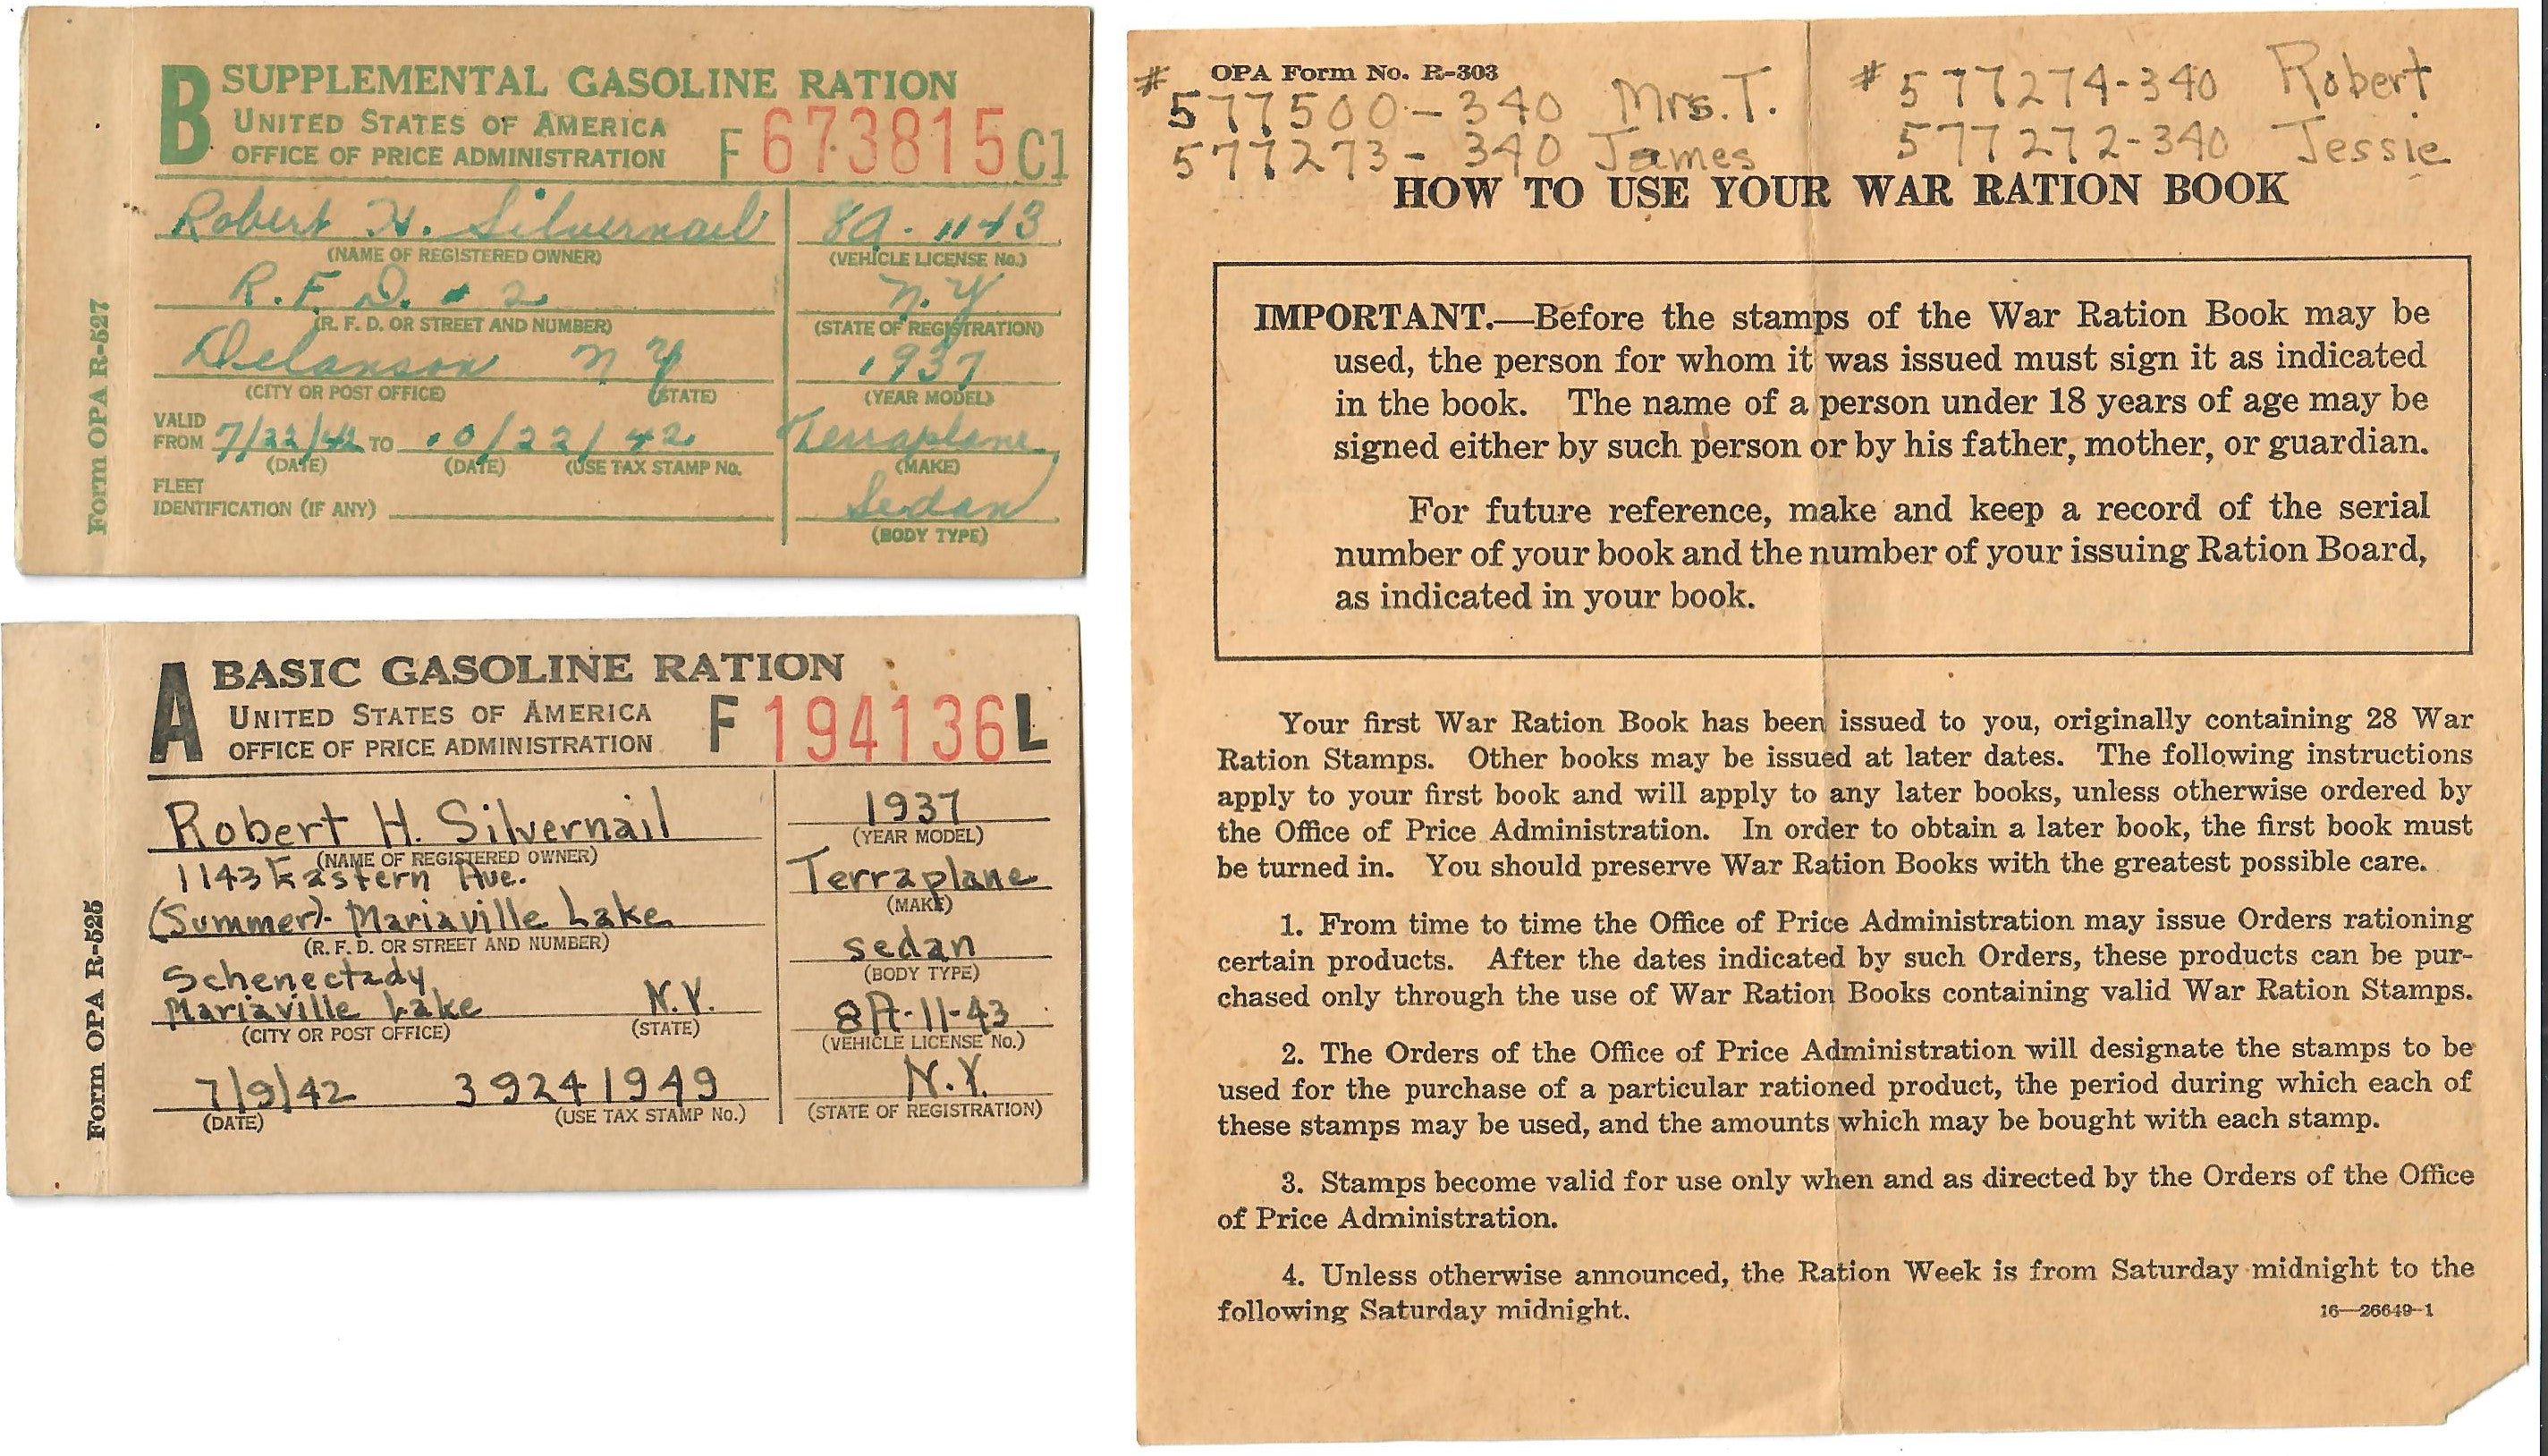 B SUPPLEMENTAL GASOLINE RATION
UNITED STATES OF AMERICA
OFFICE OF PRICE ADMINISTRATION
F 673815 C1
Robert H. Silvernail
(NAME OF REGISTERED OWNER)
8A-1143
(VEHICLE LICENSE No.)
R.F.D. # 2
(R. F. D. OR STREET AND NUMBER)
N.Y
(STATE OF REGISTRATION)
Delanson N Y
(CITY OR POST OFFICE) (STATE)
1937
(YEAR MODEL)
VALID
FROM 7/22/42 TO 10/22/42
(DATE) (DATE) (USE TAX STAMP No.
Terraplane
(MAKE)
FLEET
IDENTIFICATION (IF ANY)
Sedan
(BODY TYPE)
Form OPA R-527
A BASIC GASOLINE RATION
UNITED STATES OF AMERICA
OFFICE OF PRICE ADMINISTRATION
F 194136 L
Robert H. Silvernail
(NAME OF REGISTERED OWNER)
1143 Eastern Ave.
(Summer)- Mariaville Lake
(R. F. D. OR STREET AND NUMBER)
Schenectady
Mariaville Lake N.Y.
(CITY OR POST OFFICE) (STATE)
7/9/42 39241949
(DATE) (USE TAX STAMP No.)
1937
(YEAR MODEL)
Terraplane
(MAKE)
sedan
(BODY TYPE)
8A-11-43
(VEHICLE LICENSE No.)
N.Y.
(STATE OF REGISTRATION)
Form OPA R-525
OPA Form No. R-303
# 577500-340 Mrs. T.
577273-340 James
# 577274-340 Robert
577272-340 Jessie
HOW TO USE YOUR WAR RATION BOOK
IMPORTANT.—Before the stamps of the War Ration Book may be
used, the person for whom it was issued must sign it as indicated
in the book. The name of a person under 18 years of age may be
signed either by such person or by his father, mother, or guardian.
For future reference, make and keep a record of the serial
number of your book and the number of your issuing Ration Board,
as indicated in your book.
Your first War Ration Book has been issued to you, originally containing 28 War
Ration Stamps. Other books may be issued at later dates. The following instructions
apply to your first book and will apply to any later books, unless otherwise ordered by
the Office of Price Administration. In order to obtain a later book, the first book must
be turned in. You should preserve War Ration Books with the greatest possible care.
1. From time to time the Office of Price Administration may issue Orders rationing
certain products. After the dates indicated by such Orders, these products can be pur-
chased only through the use of War Ration Books containing valid War Ration Stamps.
2. The Orders of the Office of Price Administration will designate the stamps to be
used for the purchase of a particular rationed product, the period during which each of
these stamps may be used, and the amounts which may be bought with each stamp.
3. Stamps become valid for use only when and as directed by the Orders of the Office
of Price Administration.
4. Unless otherwise announced, the Ration Week is from Saturday midnight to the
following Saturday midnight.
16—26649-1